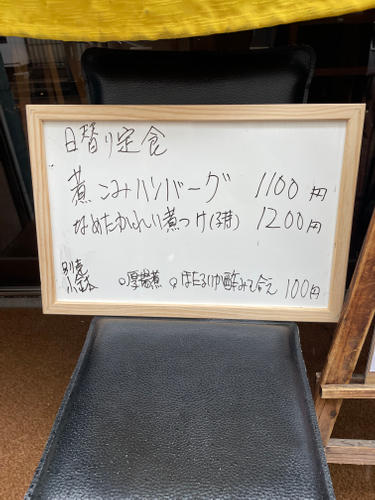 日替り定食
煮こみハンバーグ 1100円
なめたかれい煮つけ(子持) 1200円
別売 小鉢 ○厚揚煮 ○ほたるいか酢みそ和え 100円